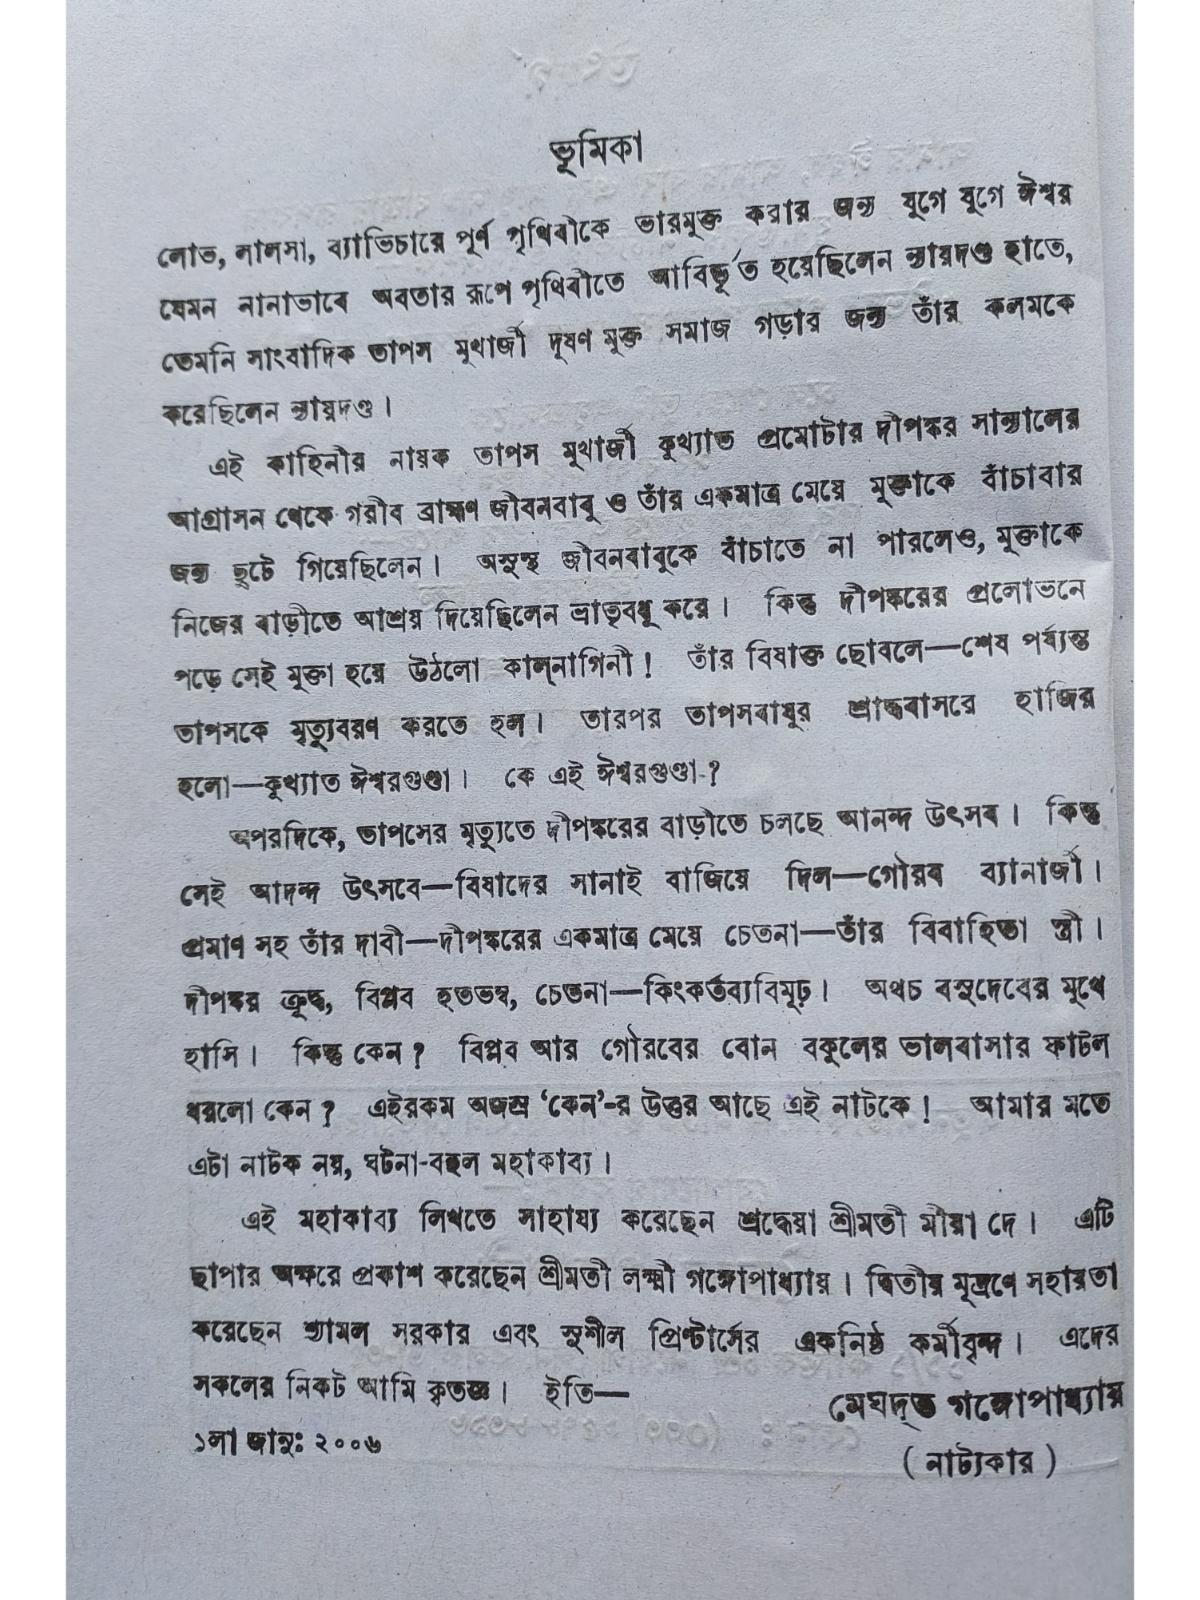 ভূমিকা
লোভ, লালসা, ব্যাভিচারে পূর্ণ পৃথিবীকে ভারমুক্ত করার জন্য যুগে যুগে ঈশ্বর
যেমন নানাভাবে অবতার রূপে পৃথিবীতে আবির্ভূত হয়েছিলেন ন্যায়দণ্ড হাতে,
তেমনি সাংবাদিক তাপস মুখার্জী দূষণ মুক্ত সমাজ গড়ার জন্য তাঁর কলমকে
করেছিলেন ন্যায়দণ্ড।
এই কাহিনীর নায়ক তাপস মুখার্জী কুখ্যাত প্রমোটার দীপঙ্কর সান্যালের
আগ্রাসন থেকে গরীব ব্রাহ্মণ জীবনবাবু ও তাঁর একমাত্র মেয়ে মুক্তাকে বাঁচাবার
জন্য ছুটে গিয়েছিলেন। অসুস্থ জীবনবাবুকে বাঁচাতে না পারলেও, মুক্তাকে
নিজের বাড়ীতে আশ্রয় দিয়েছিলেন ভ্রাতৃবধূ করে। কিন্তু দীপঙ্করের প্রলোভনে
পড়ে সেই মুক্তা হয়ে উঠলো কাল্‌নাগিনী! তাঁর বিষাক্ত ছোবলে—শেষ পর্য্যন্ত
তাপসকে মৃত্যুবরণ করতে হল। তারপর তাপসবাবুর শ্রাদ্ধবাসরে হাজির
হলো—কুখ্যাত ঈশ্বরগুণ্ডা। কে এই ঈশ্বরগুণ্ডা?
অপরদিকে, তাপসের মৃত্যুতে দীপঙ্করের বাড়ীতে চলছে আনন্দ উৎসব। কিন্তু
সেই আনন্দ উৎসবে—বিষাদের সানাই বাজিয়ে দিল—গৌরব ব্যানার্জী।
প্রমাণ সহ তাঁর দাবী—দীপঙ্করের একমাত্র মেয়ে চেতনা—তাঁর বিবাহিতা স্ত্রী।
দীপঙ্কর ক্রুদ্ধ, বিপ্লব হতভম্ব, চেতনা—কিংকর্তব্যবিমূঢ়। অথচ বসুদেবের মুখে
হাসি। কিন্তু কেন? বিপ্লব আর গৌরবের বোন বকুলের ভালবাসার ফাটল
ধরলো কেন? এইরকম অজস্র ‘কেন’-র উত্তর আছে এই নাটকে! আমার মতে
এটা নাটক নয়, ঘটনা-বহুল মহাকাব্য।
এই মহাকাব্য লিখতে সাহায্য করেছেন শ্রদ্ধেয়া শ্রীমতী মীরা দে। এটি
ছাপার অক্ষরে প্রকাশ করেছেন শ্রীমতী লক্ষ্মী গঙ্গোপাধ্যায়। দ্বিতীয় মূদ্রণে সহায়তা
করেছেন শ্যামল সরকার এবং সুশীল প্রিণ্টার্সের একনিষ্ঠ কর্মীবৃন্দ। এদের
সকলের নিকট আমি কৃতজ্ঞ। ইতি—
মেঘদূত গঙ্গোপাধ্যায়
১লা জানুঃ ২০০৬
( নাট্যকার )